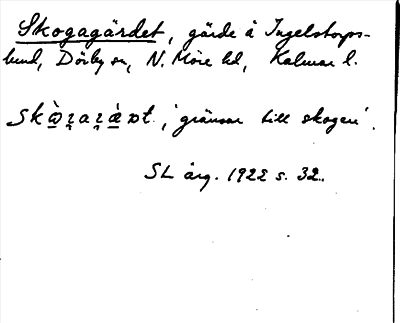 Skogagärdet, gärde å Ingelstorps-
lund, Dörby sn, N. Möre hd, Kalmar l.
'gränsar till skogen'.
SL årg. 1922 s. 32.